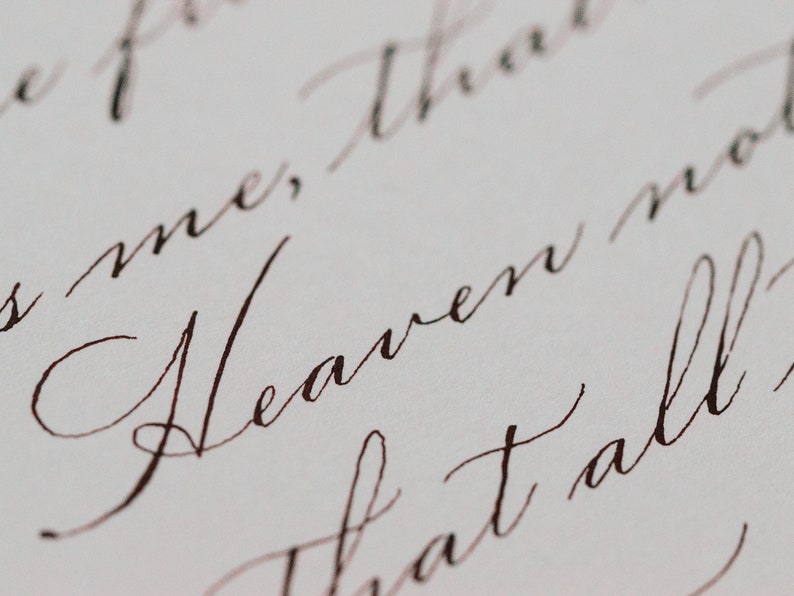 me, that
Heaven not
that all